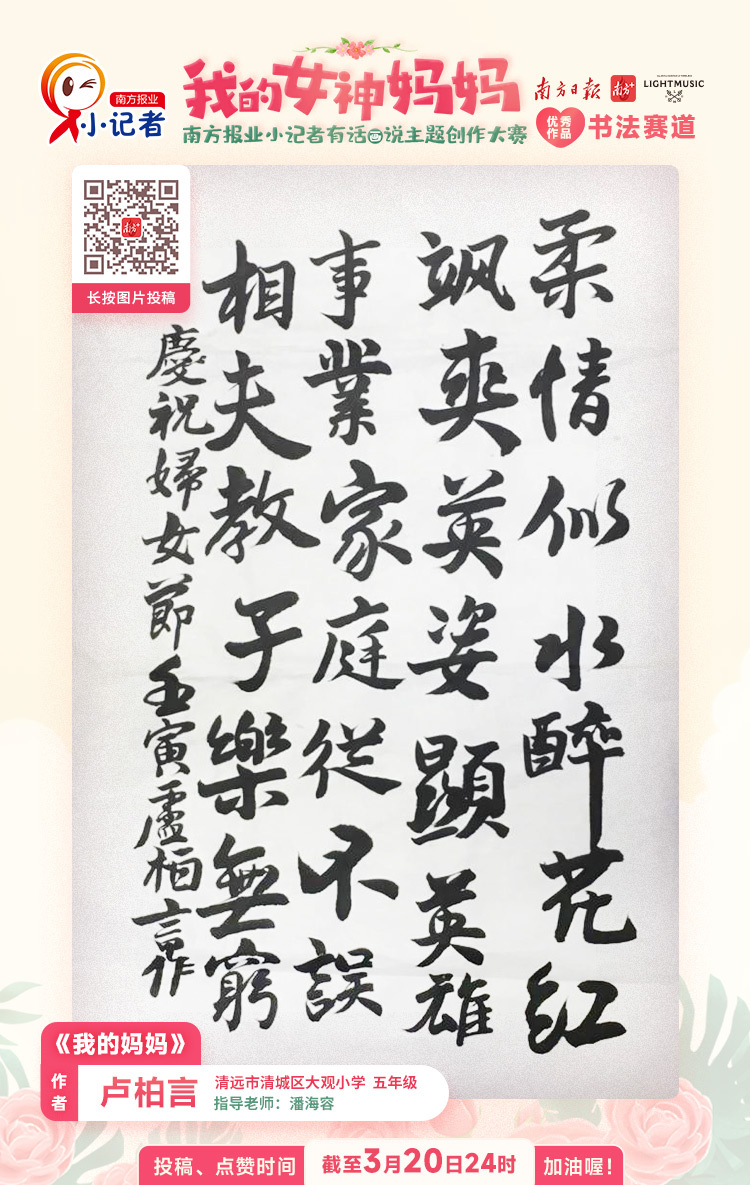 南方报业
小记者
我的女神妈妈
南方报业小记者有话说主题创作大赛
南方日报
南方+
LIGHTMUSIC
优秀作品
书法赛道
南方+
长按图片投稿
柔情似水醉花红
飒爽英姿顯英雄
事業家庭從不誤
相夫教子樂無窮
慶祝婦女節壬寅盧柏言作
《我的妈妈》
作者
卢柏言
清远市清城区大观小学 五年级
指导老师：潘海容
投稿、点赞时间
截至3月20日24时
加油喔!